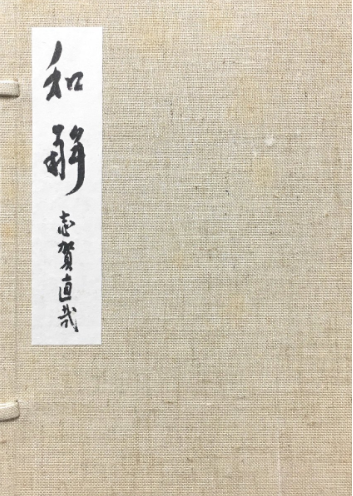 和解
志賀直哉